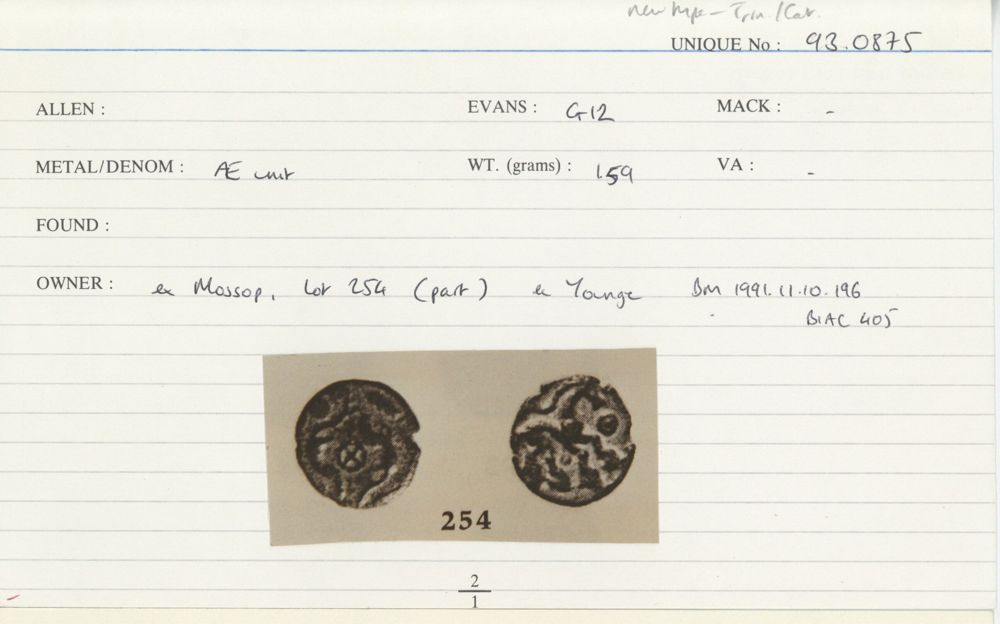 new type - Trin./Cat.
UNIQUE No : 93.0875
ALLEN : EVANS : G12 MACK : -
METAL/DENOM : Æ unit WT. (grams) : 1.59 VA : -
FOUND :
OWNER : ex Mossop, Lot 254 (part) ex Younge BM 1991.11.10.196
BIAC 405
254
2
1